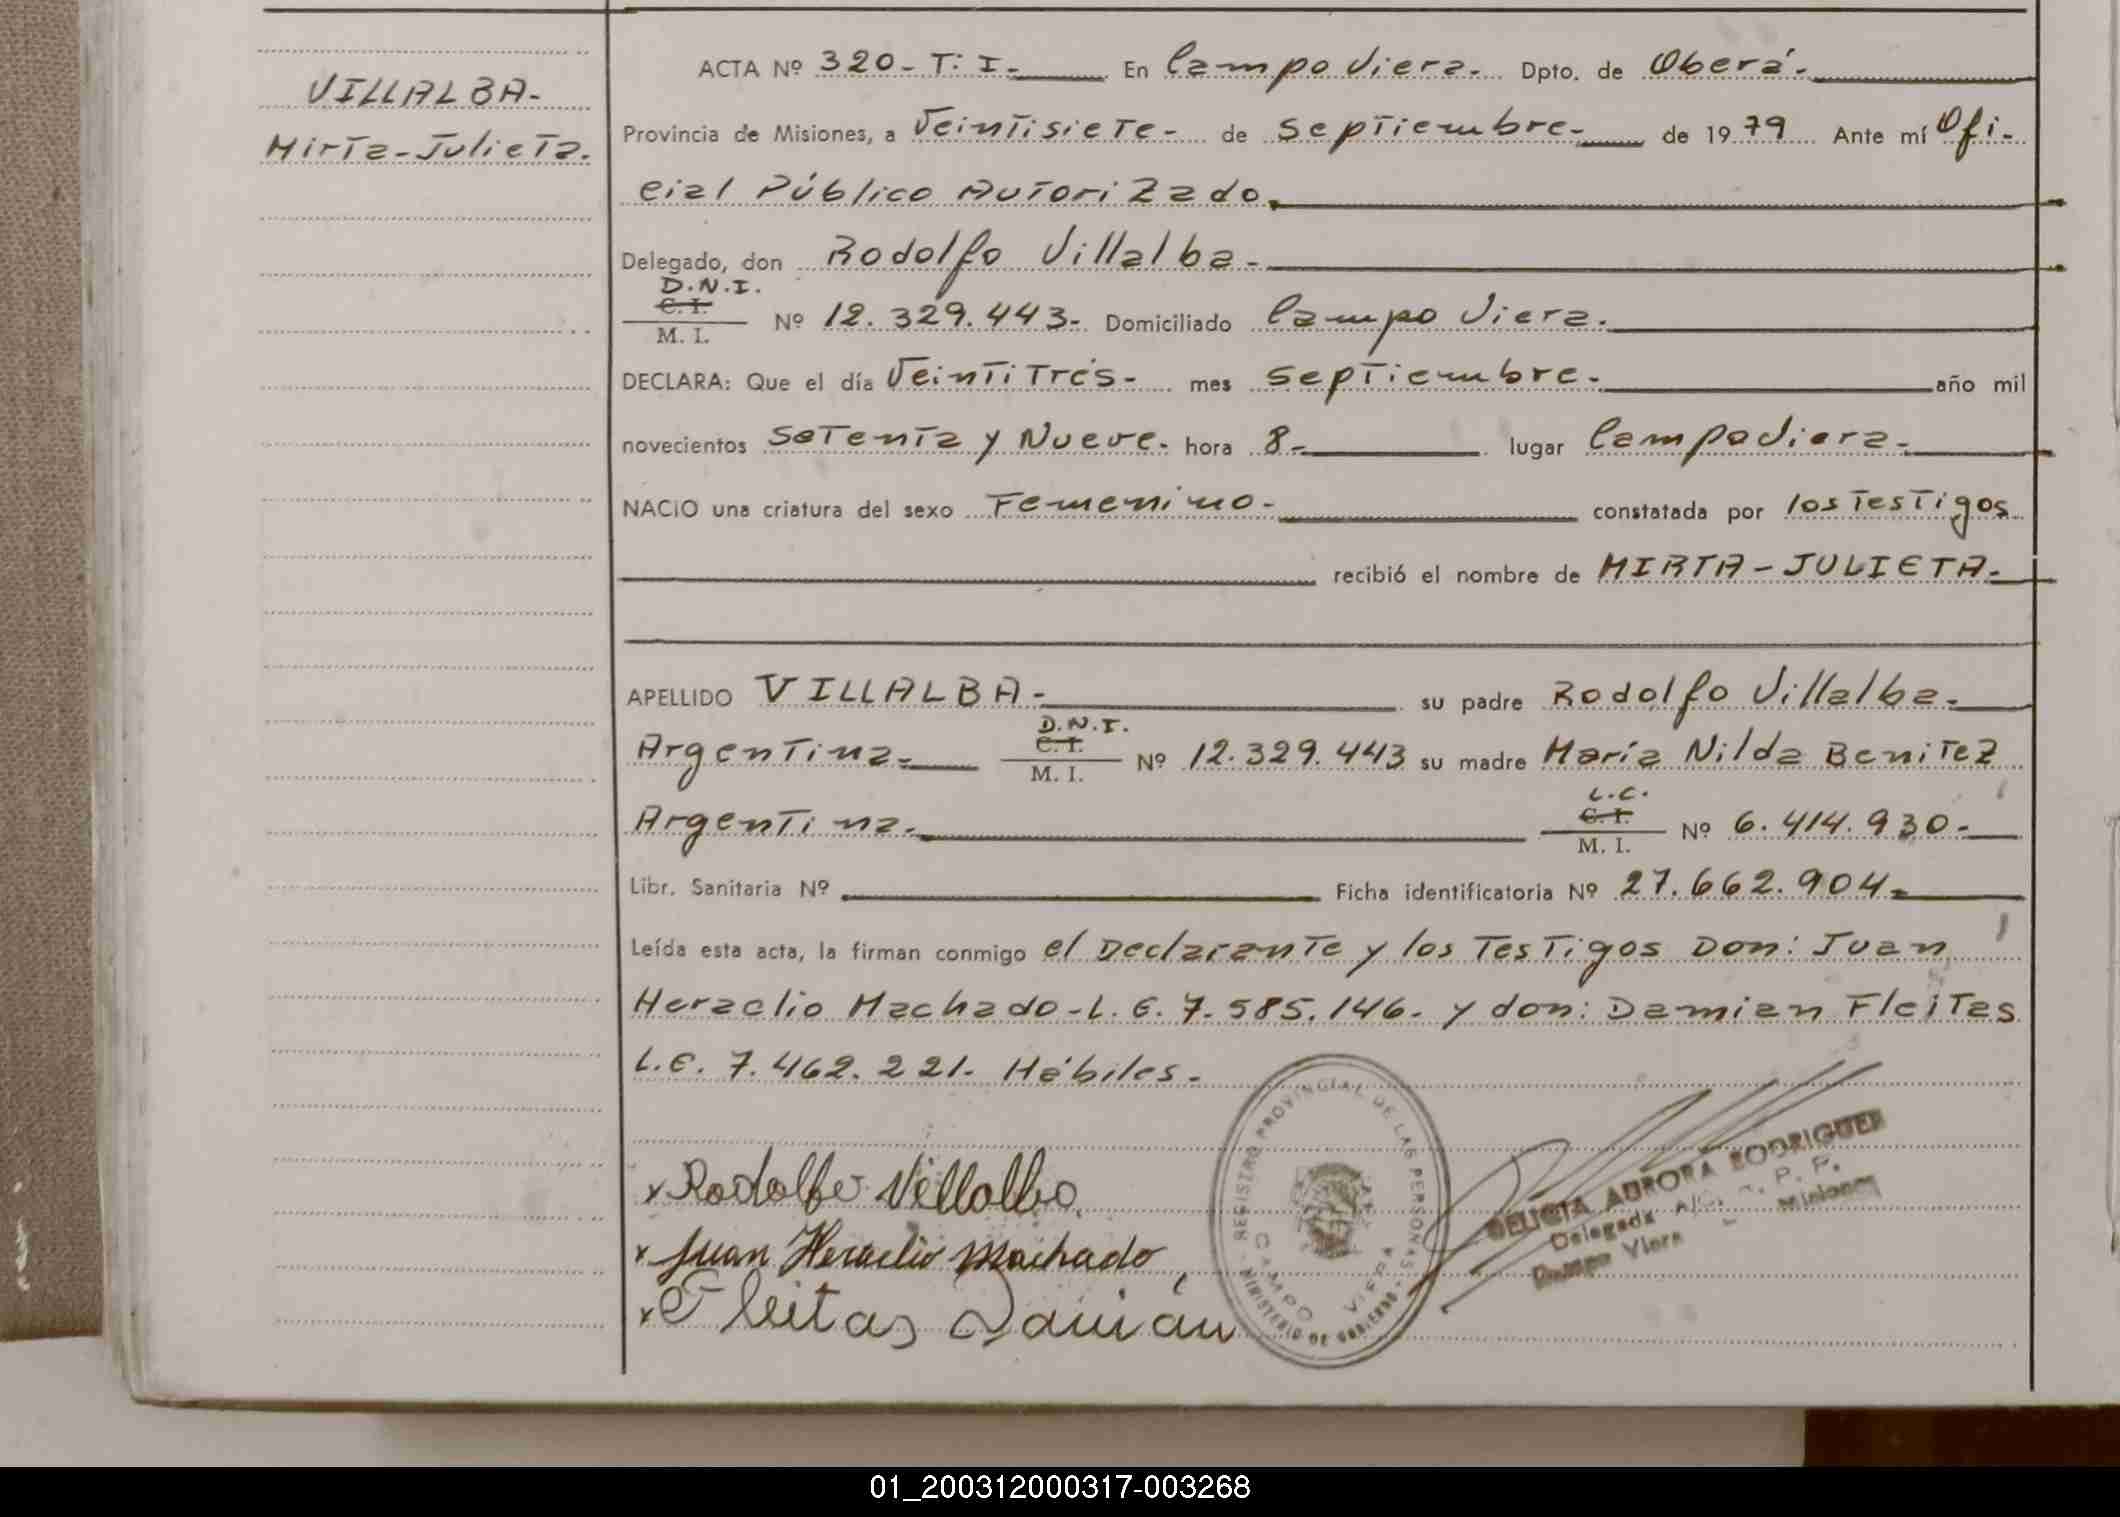 VILLALBA-
Mirta-Julieta.
ACTA Nº 320-T: I- En Campo Viera. Dpto. de Oberá.
Provincia de Misiones, a Veintisiete- de Septiembre- de 1979 Ante mí Ofi-
cial Público Autorizado.
Delegado, don Rodolfo Villalba-
D.N.I.
C. I.
M. I.
Nº 12.329.443- Domiciliado Campo Viera.
DECLARA: Que el día Veintitrés- mes Septiembre. año mil
novecientos Setenta y Nueve. hora 8- lugar Campo Viera.
NACIO una criatura del sexo Femenino- constatada por los Testigos
recibió el nombre de MIRTA-JULIETA-
APELLIDO VILLALBA- su padre Rodolfo Villalba-
D.N.I.
C. I.
M. I.
Argentina- Nº 12.329.443 su madre María Nilda Benitez
L.C.
C. I.
M. I.
Argentina. Nº 6.414.930-
Libr. Sanitaria Nº Ficha identificatoria Nº 27.662.904-
Leída esta acta, la firman conmigo el Declarante y los Testigos Don: Juan
Heraclio Machado-L.E. 7.585.146- y don: Damian Fleitas
L.E. 7.462.221- Hébiles-
x Rodolfo Villalba
x Juan Heraclio Machado
x Fleitas Damián
REGISTRO PROVINCIAL DE LAS PERSONAS
CAMPO VIERA
MINISTERIO DE GOBIERNO
DELICIA AURORA RODRIGUER
Delegada A/C. R. P. P.
Campo Viera - Misiones
01_200312000317-003268